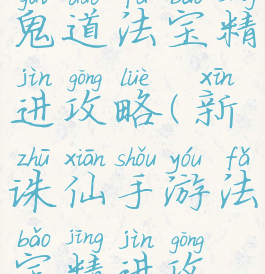 guǐ dào fǎ bǎo jīng
鬼道法宝精
jìn gōng lüè xīn
进攻略(新
zhū xiān shǒu yóu fǎ
诛仙手游法
bǎo jīng jìn gōng
宝精进攻